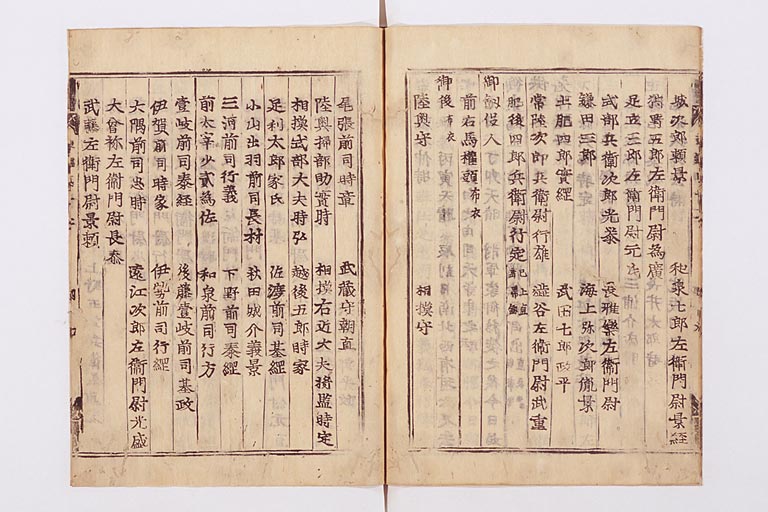 城次郎頼景 和泉七郎左衛門尉景經
五郎左衛門尉為廣
足立三郎左衛門尉元氏
式部兵衛次郎光泰 長雅樂左衛門尉
鎌田三郎 海上弥次郎胤景
土肥四郎實經 武田七郎政平
常陸次郎兵衛尉行雄 澁谷左衛門尉武重
肥後四郎兵衛尉行定 已上直垂帶劔
御劔役人
前右馬權頭 布衣
御後 布衣
陸奥守 相摸守
尾張前司時章 武蔵守朝直
陸奥掃部助實時 相摸右近大夫将監時定
相摸式部大夫時弘 越後五郎時家
足利太郎家氏 佐渡前司基經
小山出羽前司長村 秋田城介義景
三河前司行義 下野前司泰經
前太宰少貳為佐 和泉前司行方
壹岐前司泰經 後藤壹岐前司基政
伊賀前司時家 伊勢前司行經
大隅前司忠時 遠江次郎左衛門尉光盛
大曾祢左衛門尉長泰
武藤左衛門尉景頼